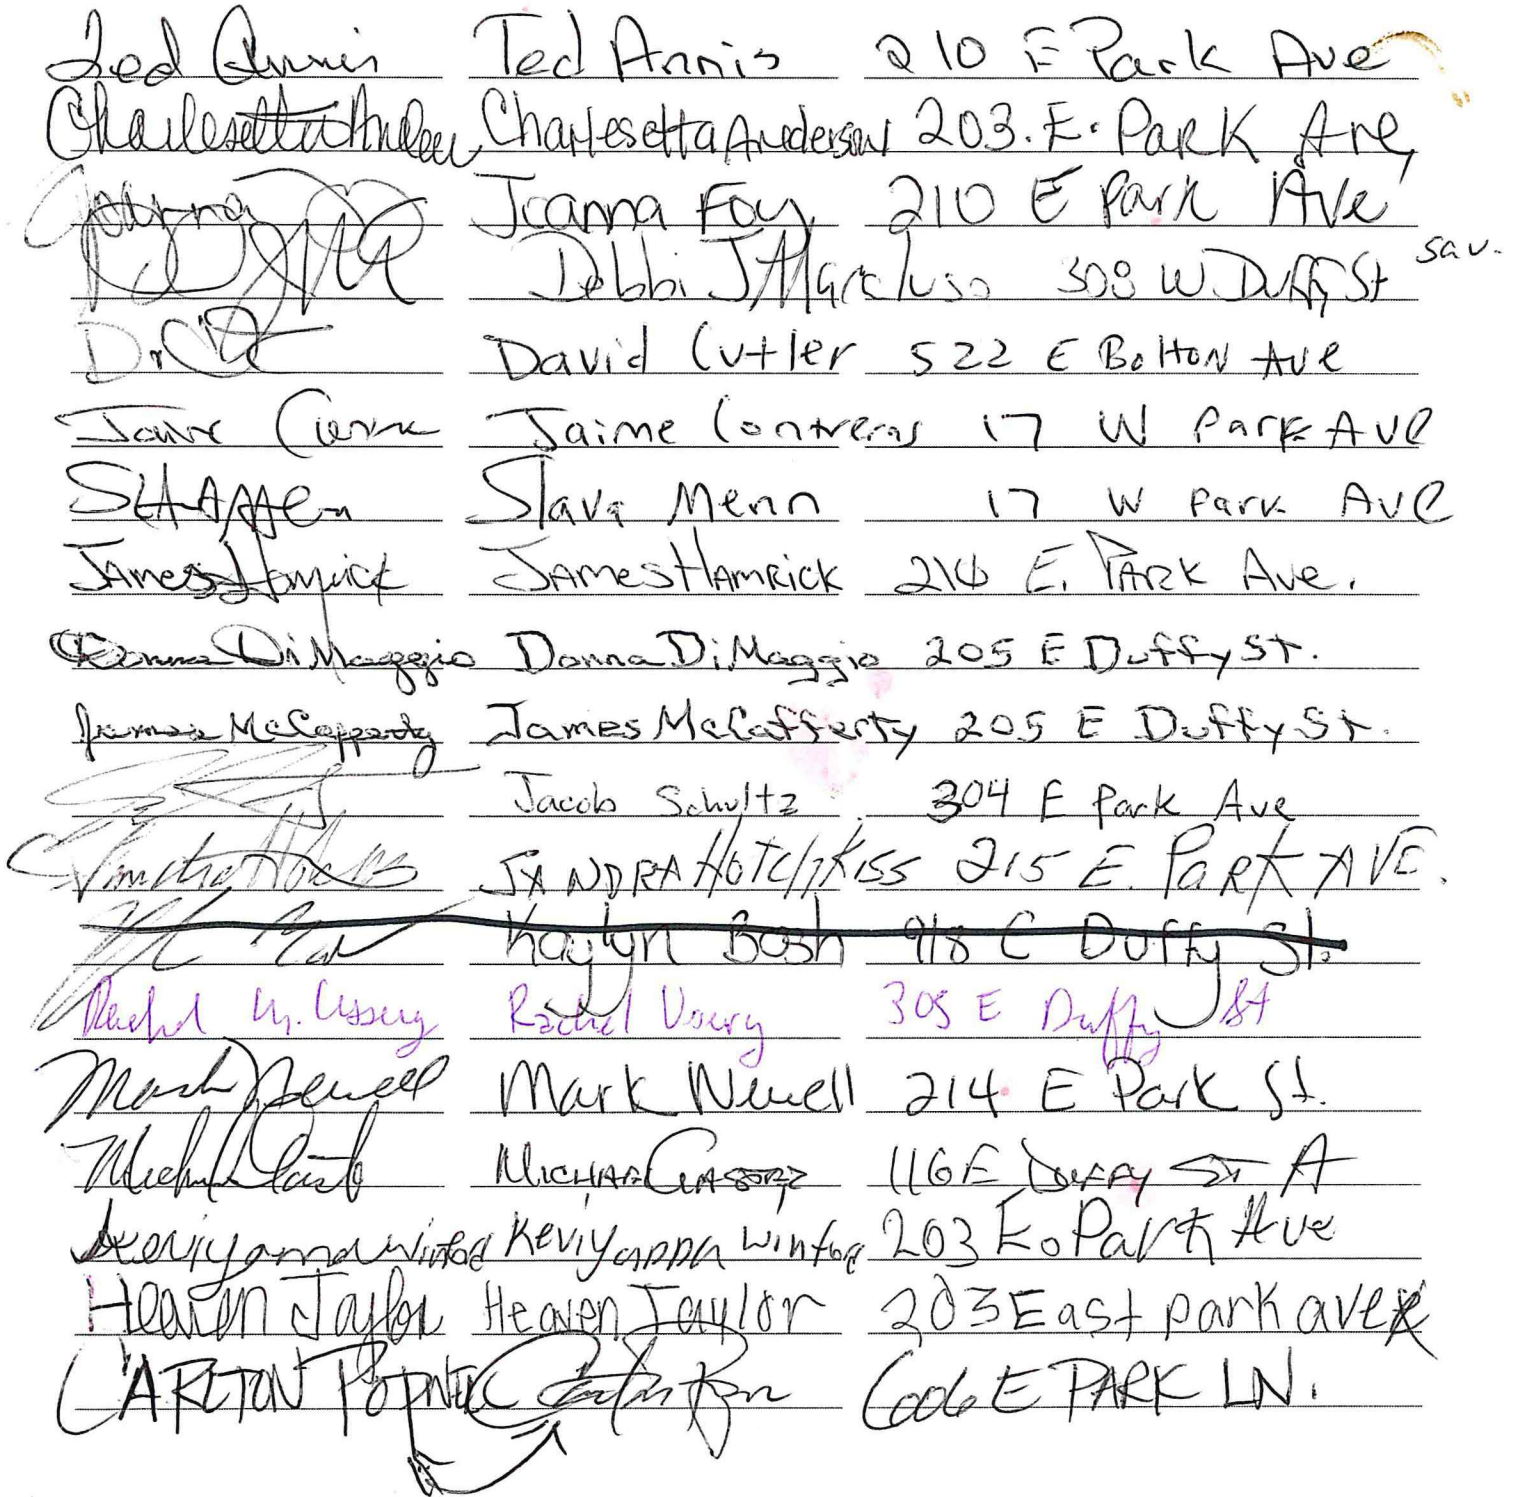 Ted Annis Ted Annis 210 E Park Ave
Charlesetta Anderson Charlesetta Anderson 203. E. Park Ave
Joanna Joanna Foy 210 E Park Ave
Debbi J 308 W Duffy St sav.
David Cutler 522 E Bolton Ave
Jaime Contreras 17 W Park Ave
Slava Menn 17 W Park Ave
James Hamrick James Hamrick 210 E. Park Ave.
Donna DiMaggio Donna DiMaggio 205 E Duffy St.
James McCafferty James McCafferty 205 E Duffy St.
Jacob Schultz 304 E Park Ave
SANDRA HOTCHKISS 215 E. PARK AVE.
Kaylyn Bosh 918 Duffy St.
Rachel M. Rachel 305 E Duffy St
Mark Newell Mark Newell 214 E Park St.
116 E Duffy St A
Keviyanna Winford 203 E. Park Ave
Heaven Taylor Heaven Taylor 203 East park ave
CARLTON 606 E PARK LN.